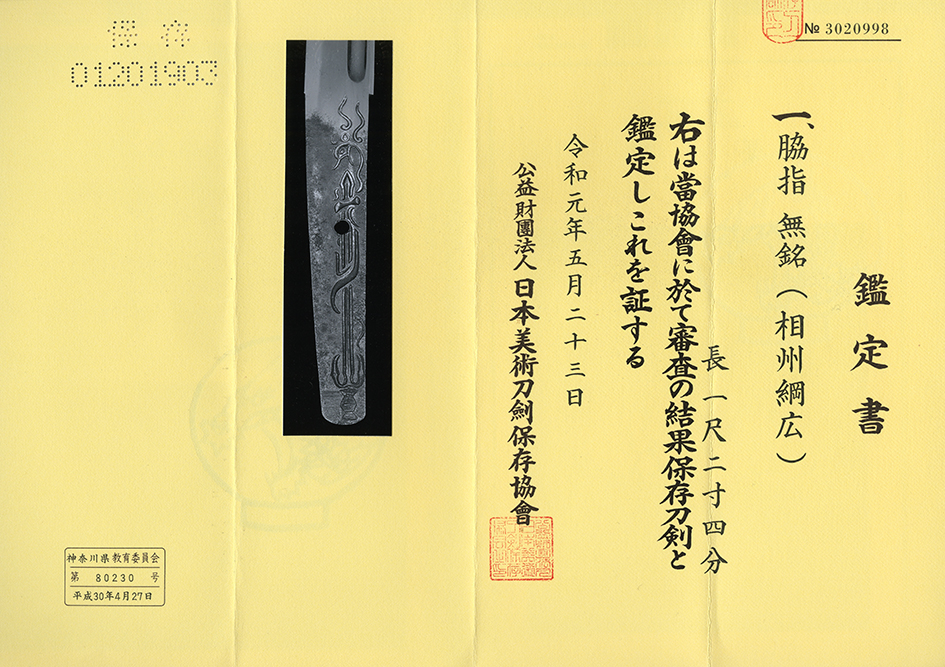 № 3020998
鑑定書
一、脇指 無銘(相州綱広)
長一尺二寸四分
右は當協會に於て審査の結果保存刀剣と
鑑定しこれを証する
令和元年五月二十三日
公益財團法人日本美術刀劍保存協會
保存
01201903
神奈川県教育委員会
第 80230 号
平成30年4月27日